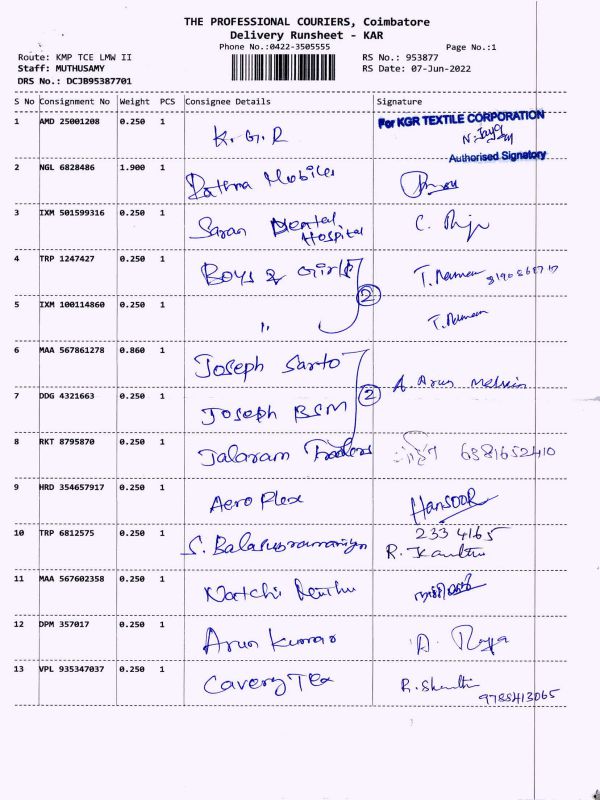 THE PROFESSIONAL COURIERS, Coimbatore
Delivery Runsheet - KAR
Phone No.:0422-3505555 Page No.:1
Route: KMP TCE LMW II RS No.: 953877
Staff: MUTHUSAMY RS Date: 07-Jun-2022
DRS No.: DCJB95387701
S No Consignment No Weight PCS Consignee Details Signature
1 AMD 25001208 0.250 1 K. G. R For KGR TEXTILE CORPORATION
Authorised Signatory
2 NGL 6828486 1.900 1 Rathna Mobiles
3 IXM 501599316 0.250 1 Saran Mental Hospital
4 TRP 1247427 0.250 1 Boys & Girls T. Raman
2
5 IXM 100114860 0.250 1 " T. Raman
6 MAA 567861278 0.860 1 Joseph Sarto
2 A. Arus Melvin
7 DDG 4321663 0.250 1 Joseph BSM
8 RKT 8795870 0.250 1 Jalaram Traders 6381652410
9 HRD 354657917 0.250 1 Aero Plex MANSOOR
10 TRP 6812575 0.250 1 S. Balasubramaniyan 233 4165
11 MAA 567602358 0.250 1 Natchi
12 DPM 357017 0.250 1 Arun Kumar A. Raja
13 VPL 935347037 0.250 1 Cavery Tex
9788413065